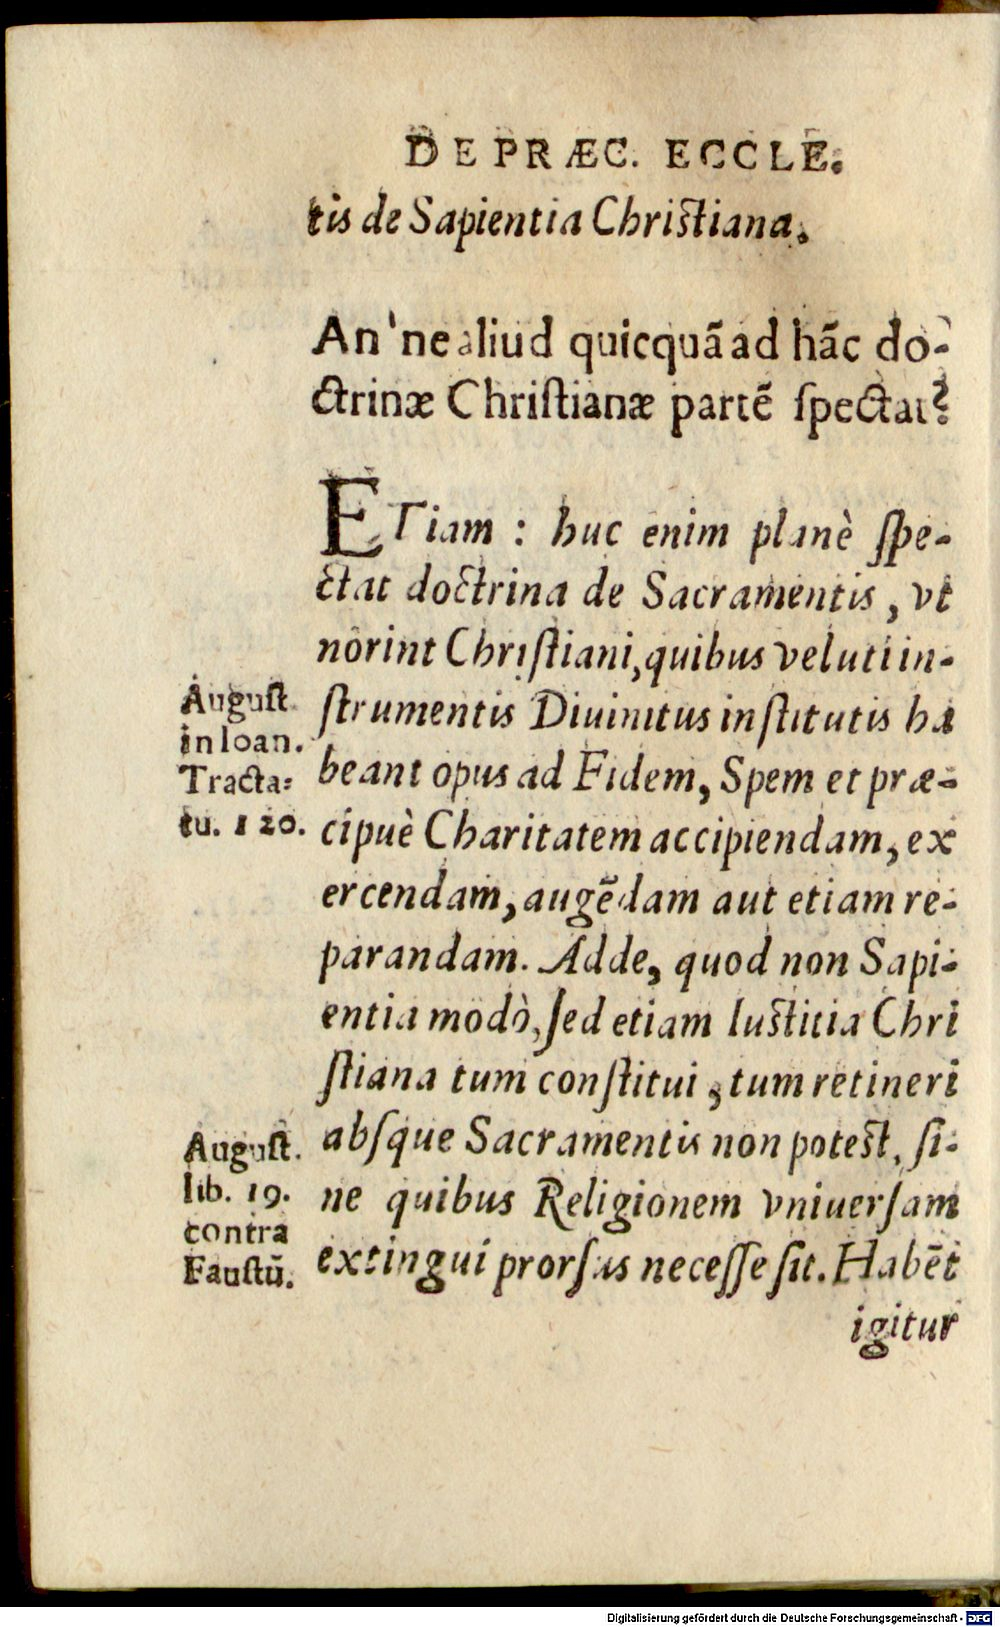 DE PRÆC. ECCLE.
tis de Sapientia Christiana.
An'ne aliud quicquã ad hãc do-
ctrinæ Christianæ partẽ ſpectat?
ETiam : huc enim planè ſpe-
ctat doctrina de Sacramentis, vt
nôrint Chriſtiani, quibus veluti in-
ſtrumentis Diuinitus inſtitutis ha
beant opus ad Fidem, Spem et præ-
cipuè Charitatem accipiendam, ex
ercendam, augẽdam aut etiam re-
parandam. Adde, quod non Sapi-
entia modò, ſed etiam Iustitia Chri
ſtiana tum conſtitui, tum retineri
abſque Sacramentis non potest, ſi-
ne quibus Religionem vniuerſam
extingui prorſus neceſſe ſit. Habẽt
igitur
Auguſt
in Ioan.
Tracta-
tu. 120.
Auguſt.
lib. 19.
contra
Fauſtũ.
Digitalisierung gefördert durch die Deutsche Forschungsgemeinschaft - DFG